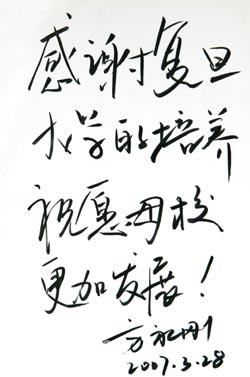 感谢复旦
大学的培养
祝愿母校
更加发展！
方永刚
2007.3.28